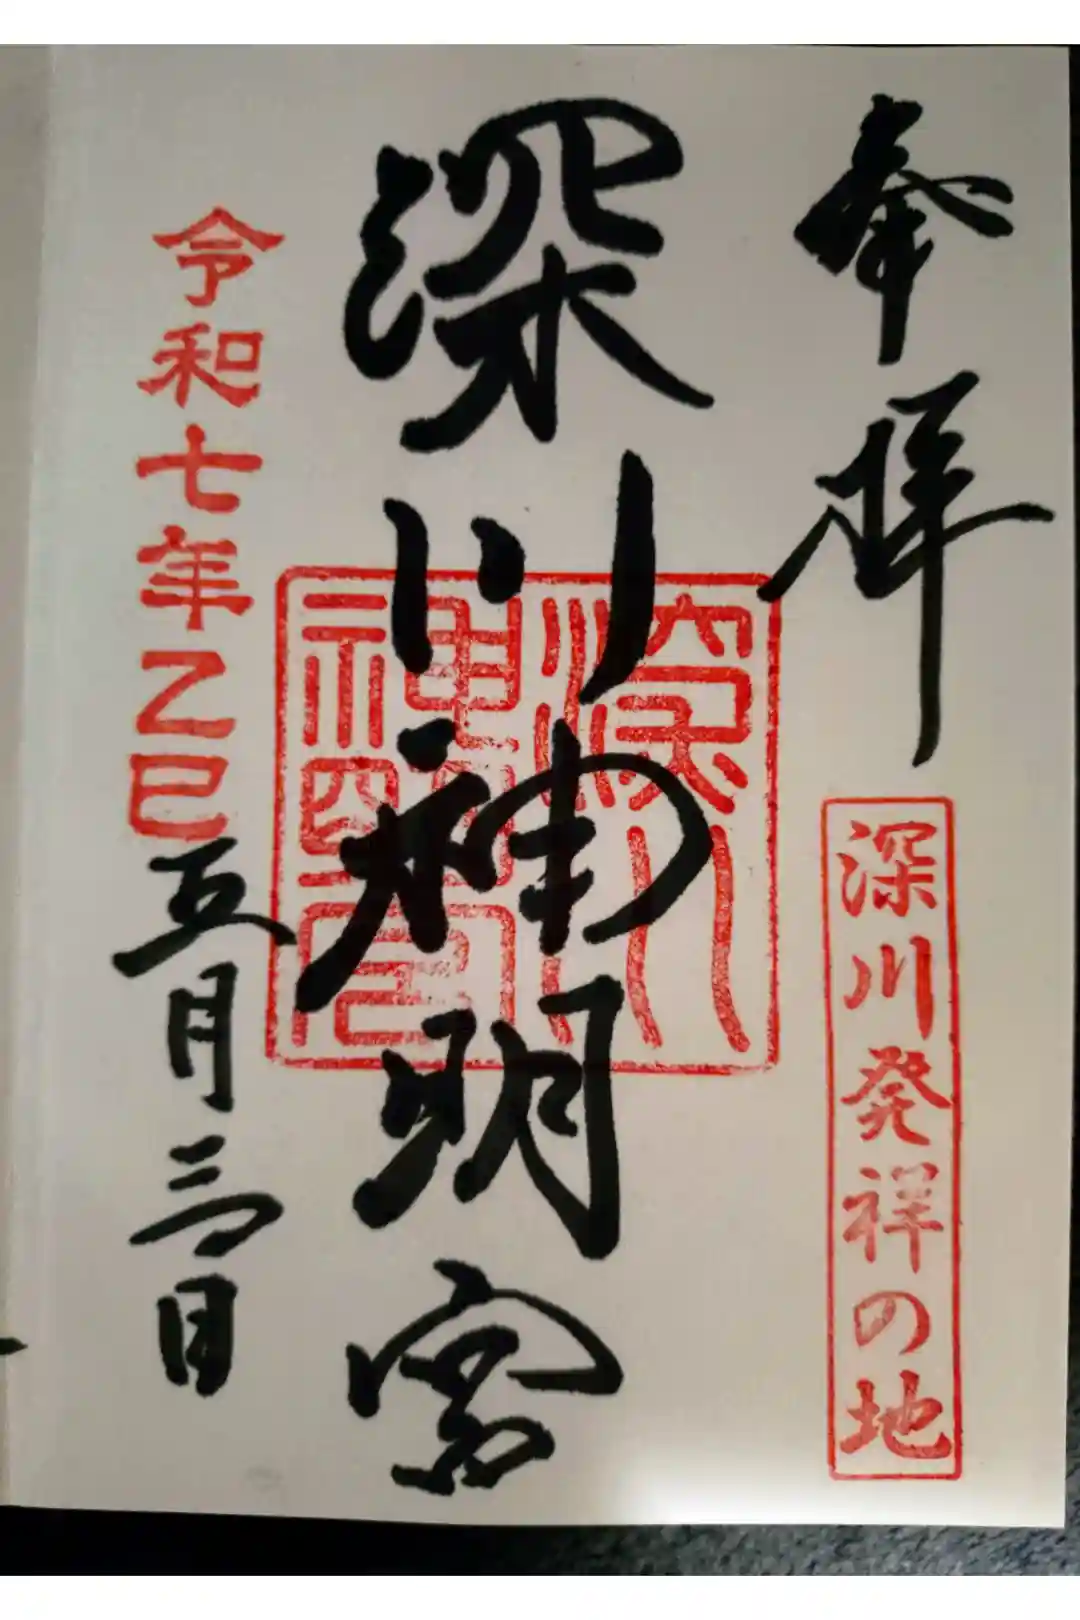 奉拝
深川発祥の地
深川神明宮
深川
神明宮
令和七年乙巳五月三日